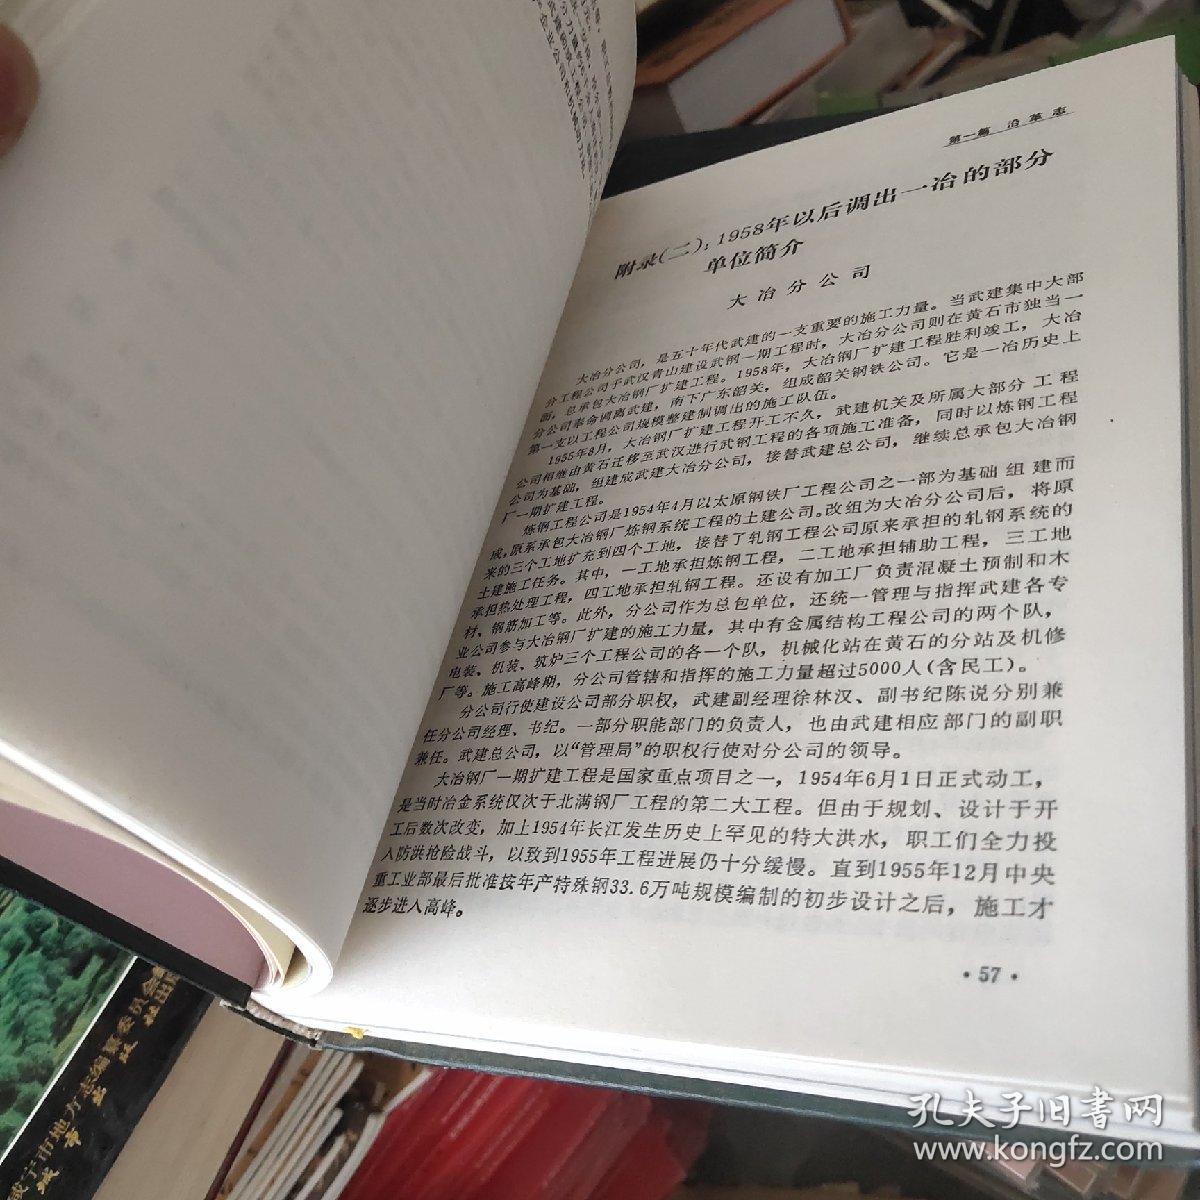 第一篇 沿革志
附录(二)：1958年以后调出一冶的部分
单位简介
大冶分公司
大冶分公司，是五十年代武建的一支重要的施工力量。当武建集中大部
分工程公司于武汉青山建设武钢一期工程时，大冶分公司则在黄石市独当一
面，总承包大冶钢厂扩建工程。1958年，大冶钢厂扩建工程胜利竣工，大冶
分公司奉命调离武建，南下广东韶关，组成韶关钢铁公司。它是一冶历史上
第一支以工程公司规模整建制调出的施工队伍。
1955年8月，大冶钢厂扩建工程开工不久，武建机关及所属大部分工程
公司相继由黄石迁移至武汉进行武钢工程的各项施工准备，同时以炼钢工程
公司为基础，组建成武建大冶分公司，接替武建总公司，继续总承包大冶钢
厂一期扩建工程。
炼钢工程公司是1954年4月以太原钢铁厂工程公司之一部为基础组建而
成，原系承包大冶钢厂炼钢系统工程的土建公司。改组为大冶分公司后，将原
来的三个工地扩充到四个工地，接替了轧钢工程公司原来承担的轧钢系统的
土建施工任务。其中，一工地承担炼钢工程，二工地承担辅助工程，三工地
承担热处理工程，四工地承担轧钢工程。还设有加工厂负责混凝土预制和木
材、钢筋加工等。此外，分公司作为总包单位，还统一管理与指挥武建各专
业公司参与大冶钢厂扩建的施工力量，其中有金属结构工程公司的两个队，
电装、机装、筑炉三个工程公司的各一个队，机械化站在黄石的分站及机修
厂等。施工高峰期，分公司管辖和指挥的施工力量超过5000人(含民工)。
分公司行使建设公司部分职权，武建副经理徐林汉、副书纪陈说分别兼
任分公司经理、书纪。一部分职能部门的负责人，也由武建相应部门的副职
兼任。武建总公司，以“管理局”的职权行使对分公司的领导。
大冶钢厂一期扩建工程是国家重点项目之一，1954年6月1日正式动工，
是当时冶金系统仅次于北满钢厂工程的第二大工程。但由于规划、设计于开
工后数次改变，加上1954年长江发生历史上罕见的特大洪水，职工们全力投
入防洪抢险战斗，以致到1955年工程进展仍十分缓慢。直到1955年12月中央
重工业部最后批准按年产特殊钢33.6万吨规模编制的初步设计之后，施工才
逐步进入高峰。
·57·
咸宁市地方志编纂委员会编
孔夫子旧书网
www.kongfz.com